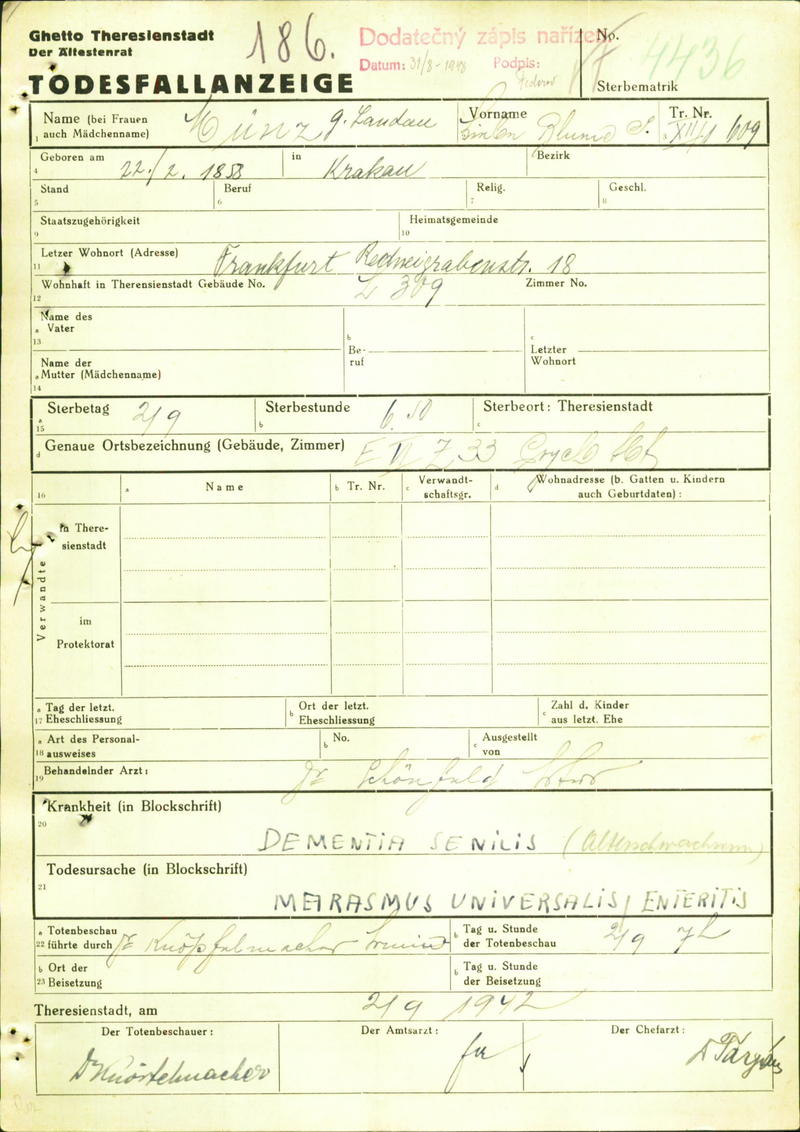 Ghetto Theresienstadt
Der Ältestenrat
186.
Dodatečný zápis nařízen
Datum: 31/8-1948 Podpis:
No. 4436
Sterbematrik
TODESFALLANZEIGE
Name (bei Frauen auch Mädchenname) Münz g. Landau
Vorname Blume S.
Tr. Nr. XII/1 609
1
Geboren am 22./2. 1858 in Krakau Bezirk
4
Stand Beruf Relig. Geschl.
5 6 7 8
Staatszugehörigkeit Heimatsgemeinde
9 10
Letzer Wohnort (Adresse) Frankfurt Rechneigrabenstr. 18
11
Wohnhaft in Theresienstadt Gebäude No. L 309 Zimmer No.
12
Name des
a Vater
13
b Beruf
c Letzter Wohnort
Name der
a Mutter (Mädchenname)
14
Sterbetag 2/9 Sterbestunde 6.50 Sterbeort: Theresienstadt
a 15 b c
d Genaue Ortsbezeichnung (Gebäude, Zimmer) E II Z 33
16 a Name b Tr. Nr. c Verwandtschaftsgr. d Wohnadresse (b. Gatten u. Kindern auch Geburtdaten) :
Verwandte
in Theresienstadt
im
Protektorat
a Tag der letzt. b Ort der letzt. c Zahl d. Kinder
17 Eheschliessung Eheschliessung aus letzt. Ehe
a Art des Personal- b No. c Ausgestellt
18 ausweises von
Behandelnder Arzt: Dr Schönfeld
19
Krankheit (in Blockschrift)
20
DEMENTIA SENILIS (Altersschwachsinn)
Todesursache (in Blockschrift)
21
MARASMUS UNIVERSALIS, ENTERITIS
a Totenbeschau b Tag u. Stunde
22 führte durch Dr Knöpfelmacher der Totenbeschau 2/9 7h
b Ort der b Tag u. Stunde
23 Beisetzung der Beisetzung
Theresienstadt, am 2/9 1942
Der Totenbeschauer: Der Amtsarzt: Der Chefarzt: